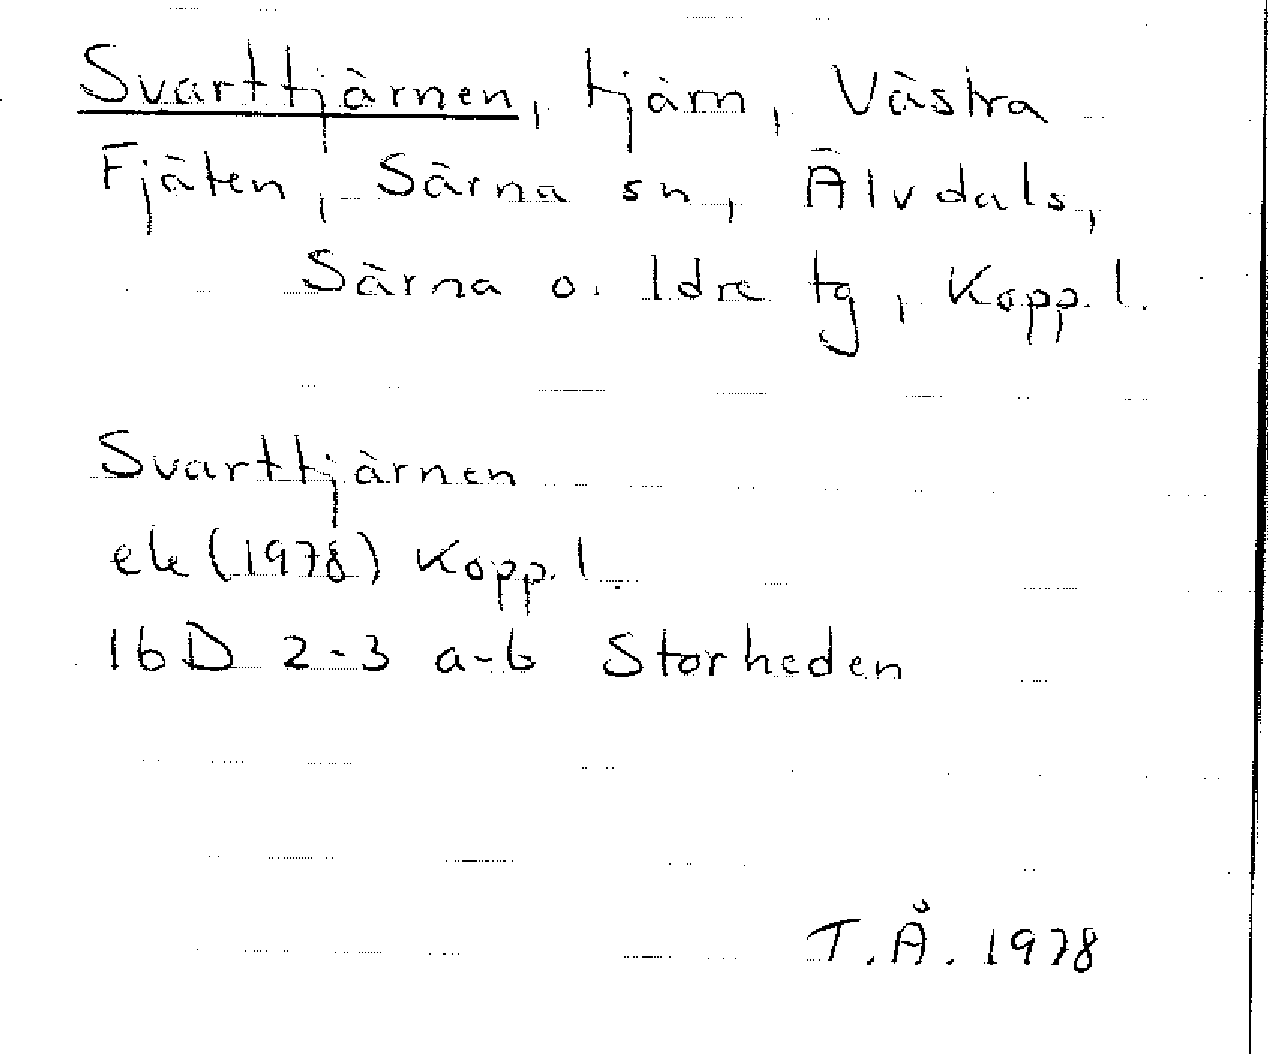 Svarttjärnen, tjärn, Västra
Fjäten, Särna sn, Älvdals,
Särna o. Idre tg, Kopp. l.
Svarttjärnen
ek (1978) Kopp. l.
16D 2-3 a-b Storheden
T.Å. 1978